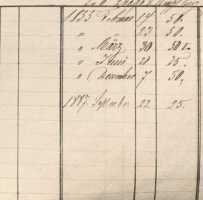 1855 Februar 17 50.
" " 23 50.
" März 30 50.
" Juni 21 25.
" December 7 50.
1857 September 22 25.